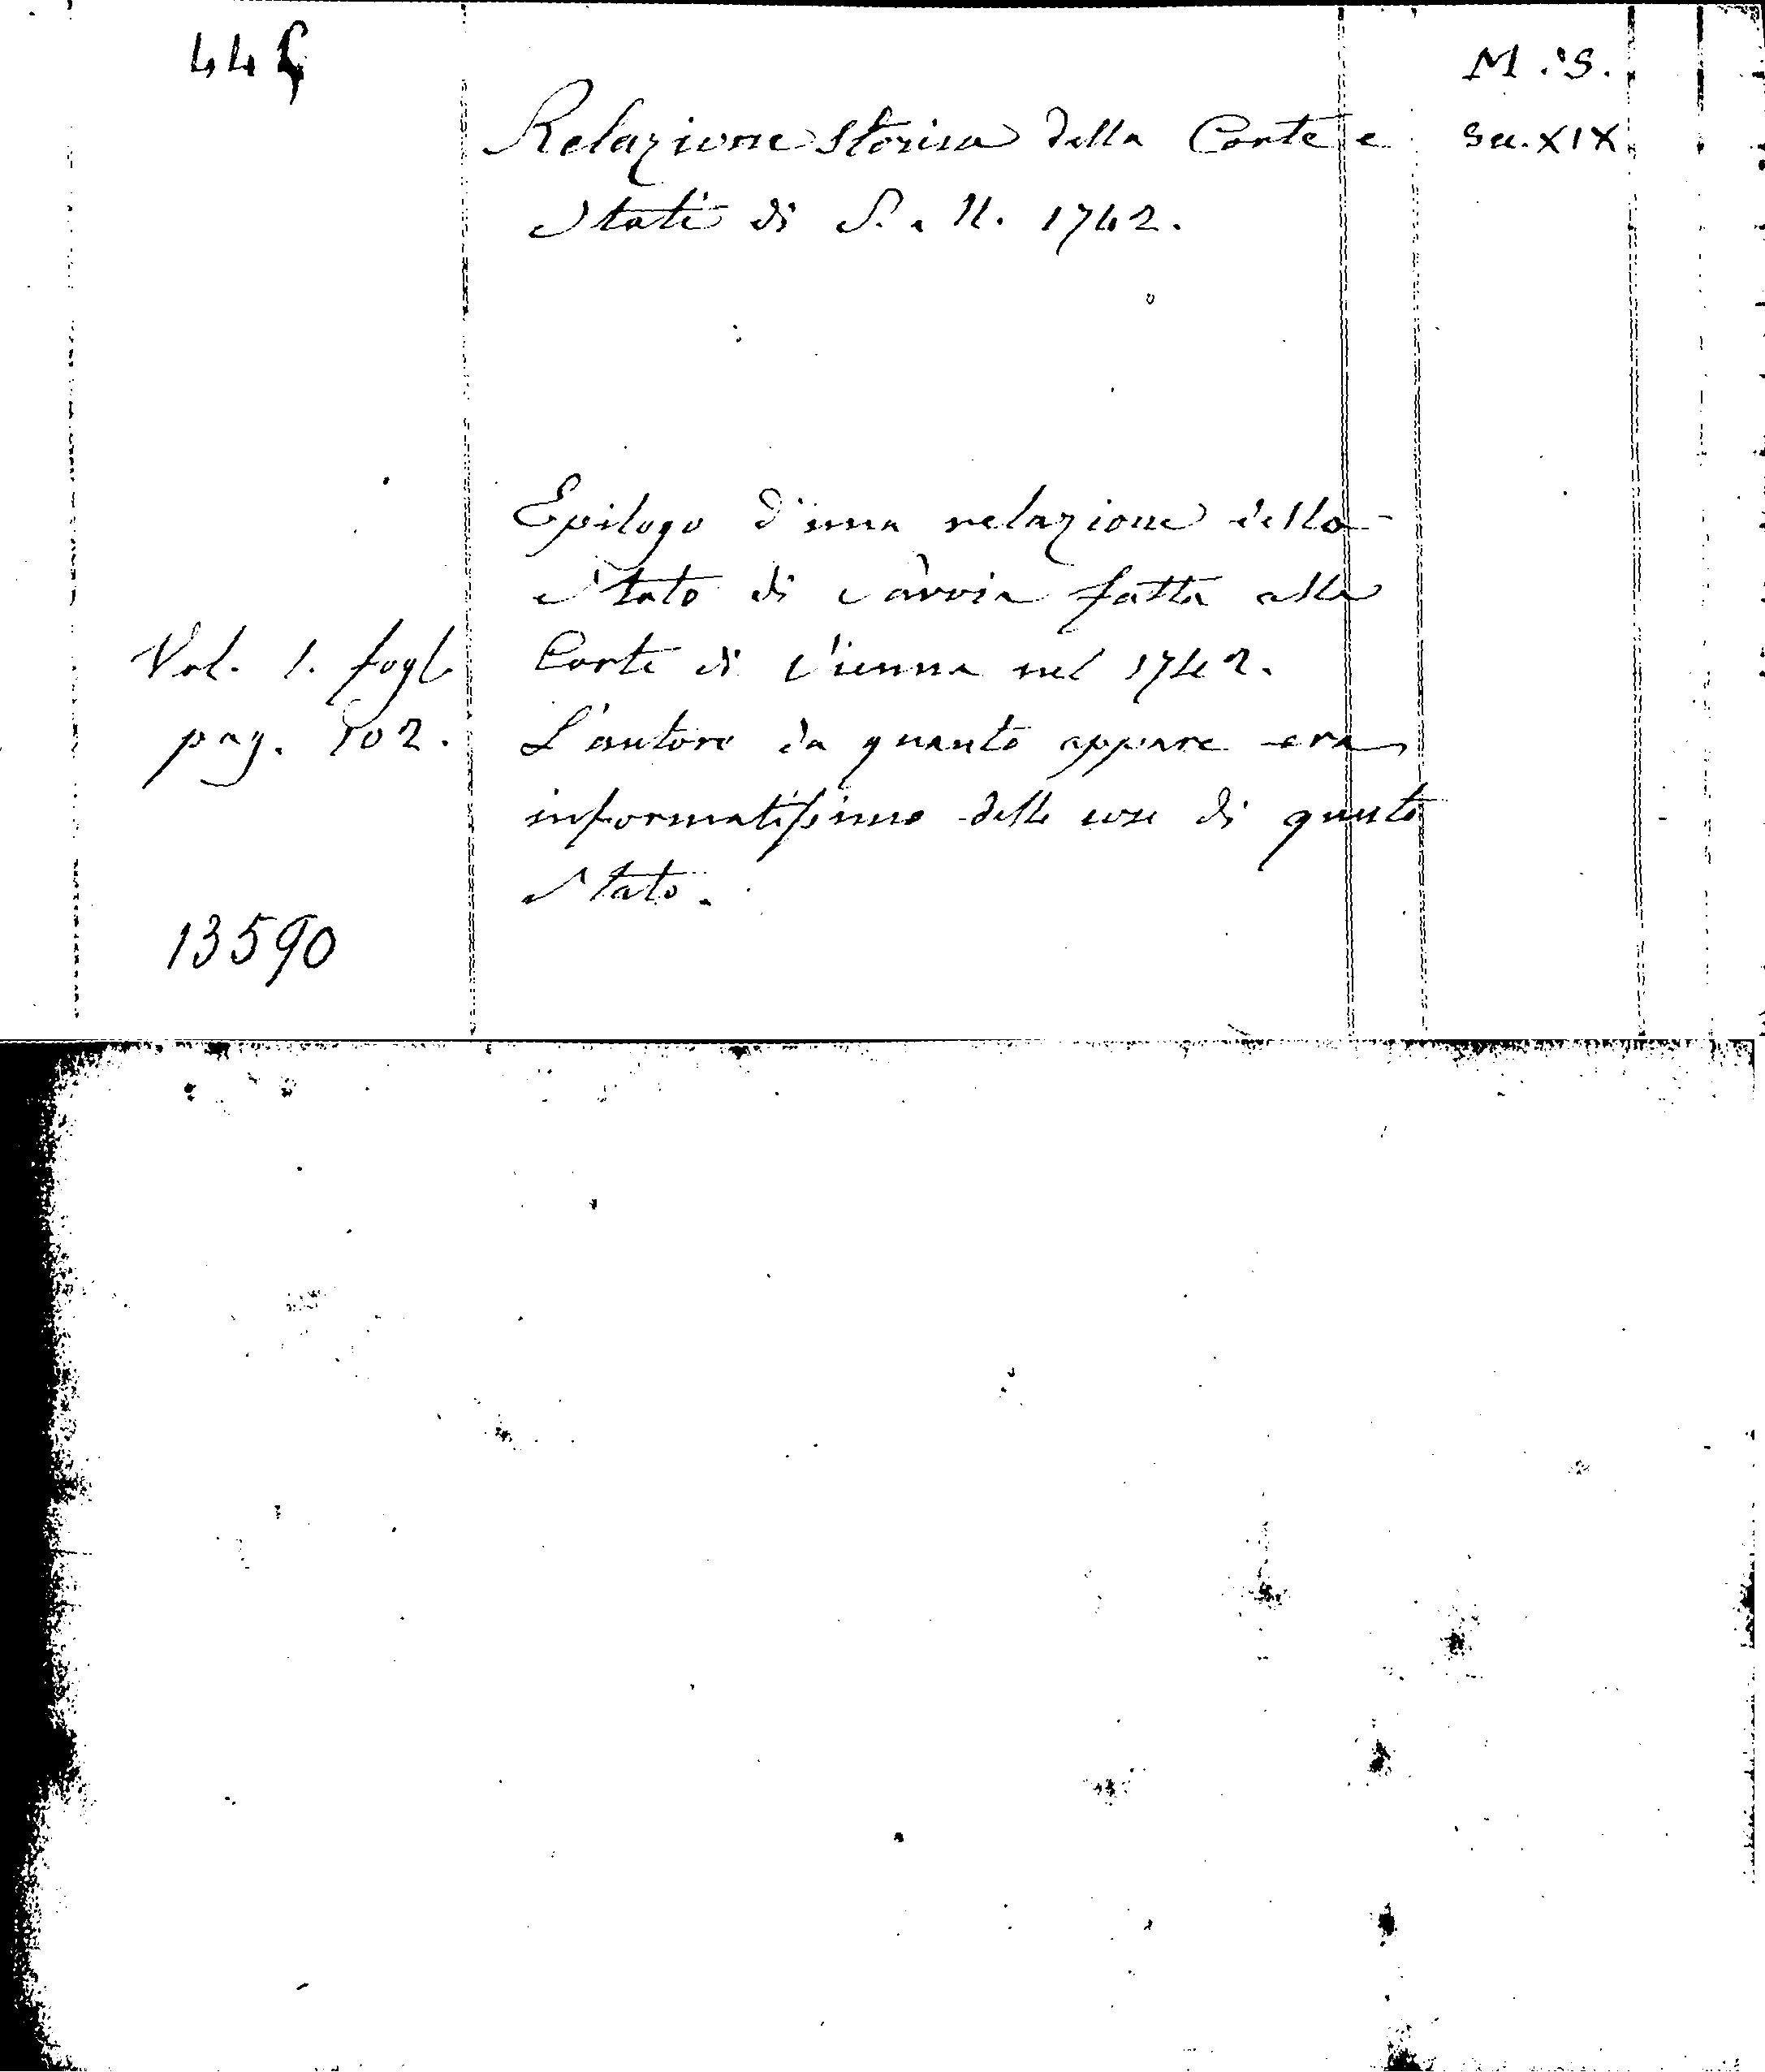 44
M.S.
Relazione storica della Corte e
Sec. XIX
Stati di S. M. 1742.
Epilogo d'una relazione dello
Stato di Savoia fatta alla
Vol. 1. fogl.
Corte di Vienna nel 1742.
pag. 502.
L'autore da quanto appare era
informatissimo delle cose di questo
Stato.
13590